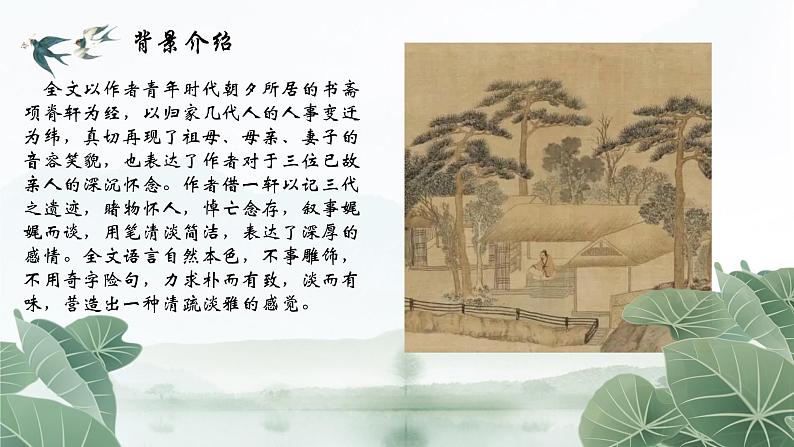 背景介绍
全文以作者青年时代朝夕所居的书斋
项脊轩为经，以归家几代人的人事变迁
为纬，真切再现了祖母、母亲、妻子的
音容笑貌，也表达了作者对于三位已故
亲人的深沉怀念。作者借一轩以记三代
之遗迹，睹物怀人，悼亡念存，叙事娓
娓而谈，用笔清淡简洁，表达了深厚的
感情。全文语言自然本色，不事雕饰，
不用奇字险句，力求朴而有致，淡而有
味，营造出一种清疏淡雅的感觉。